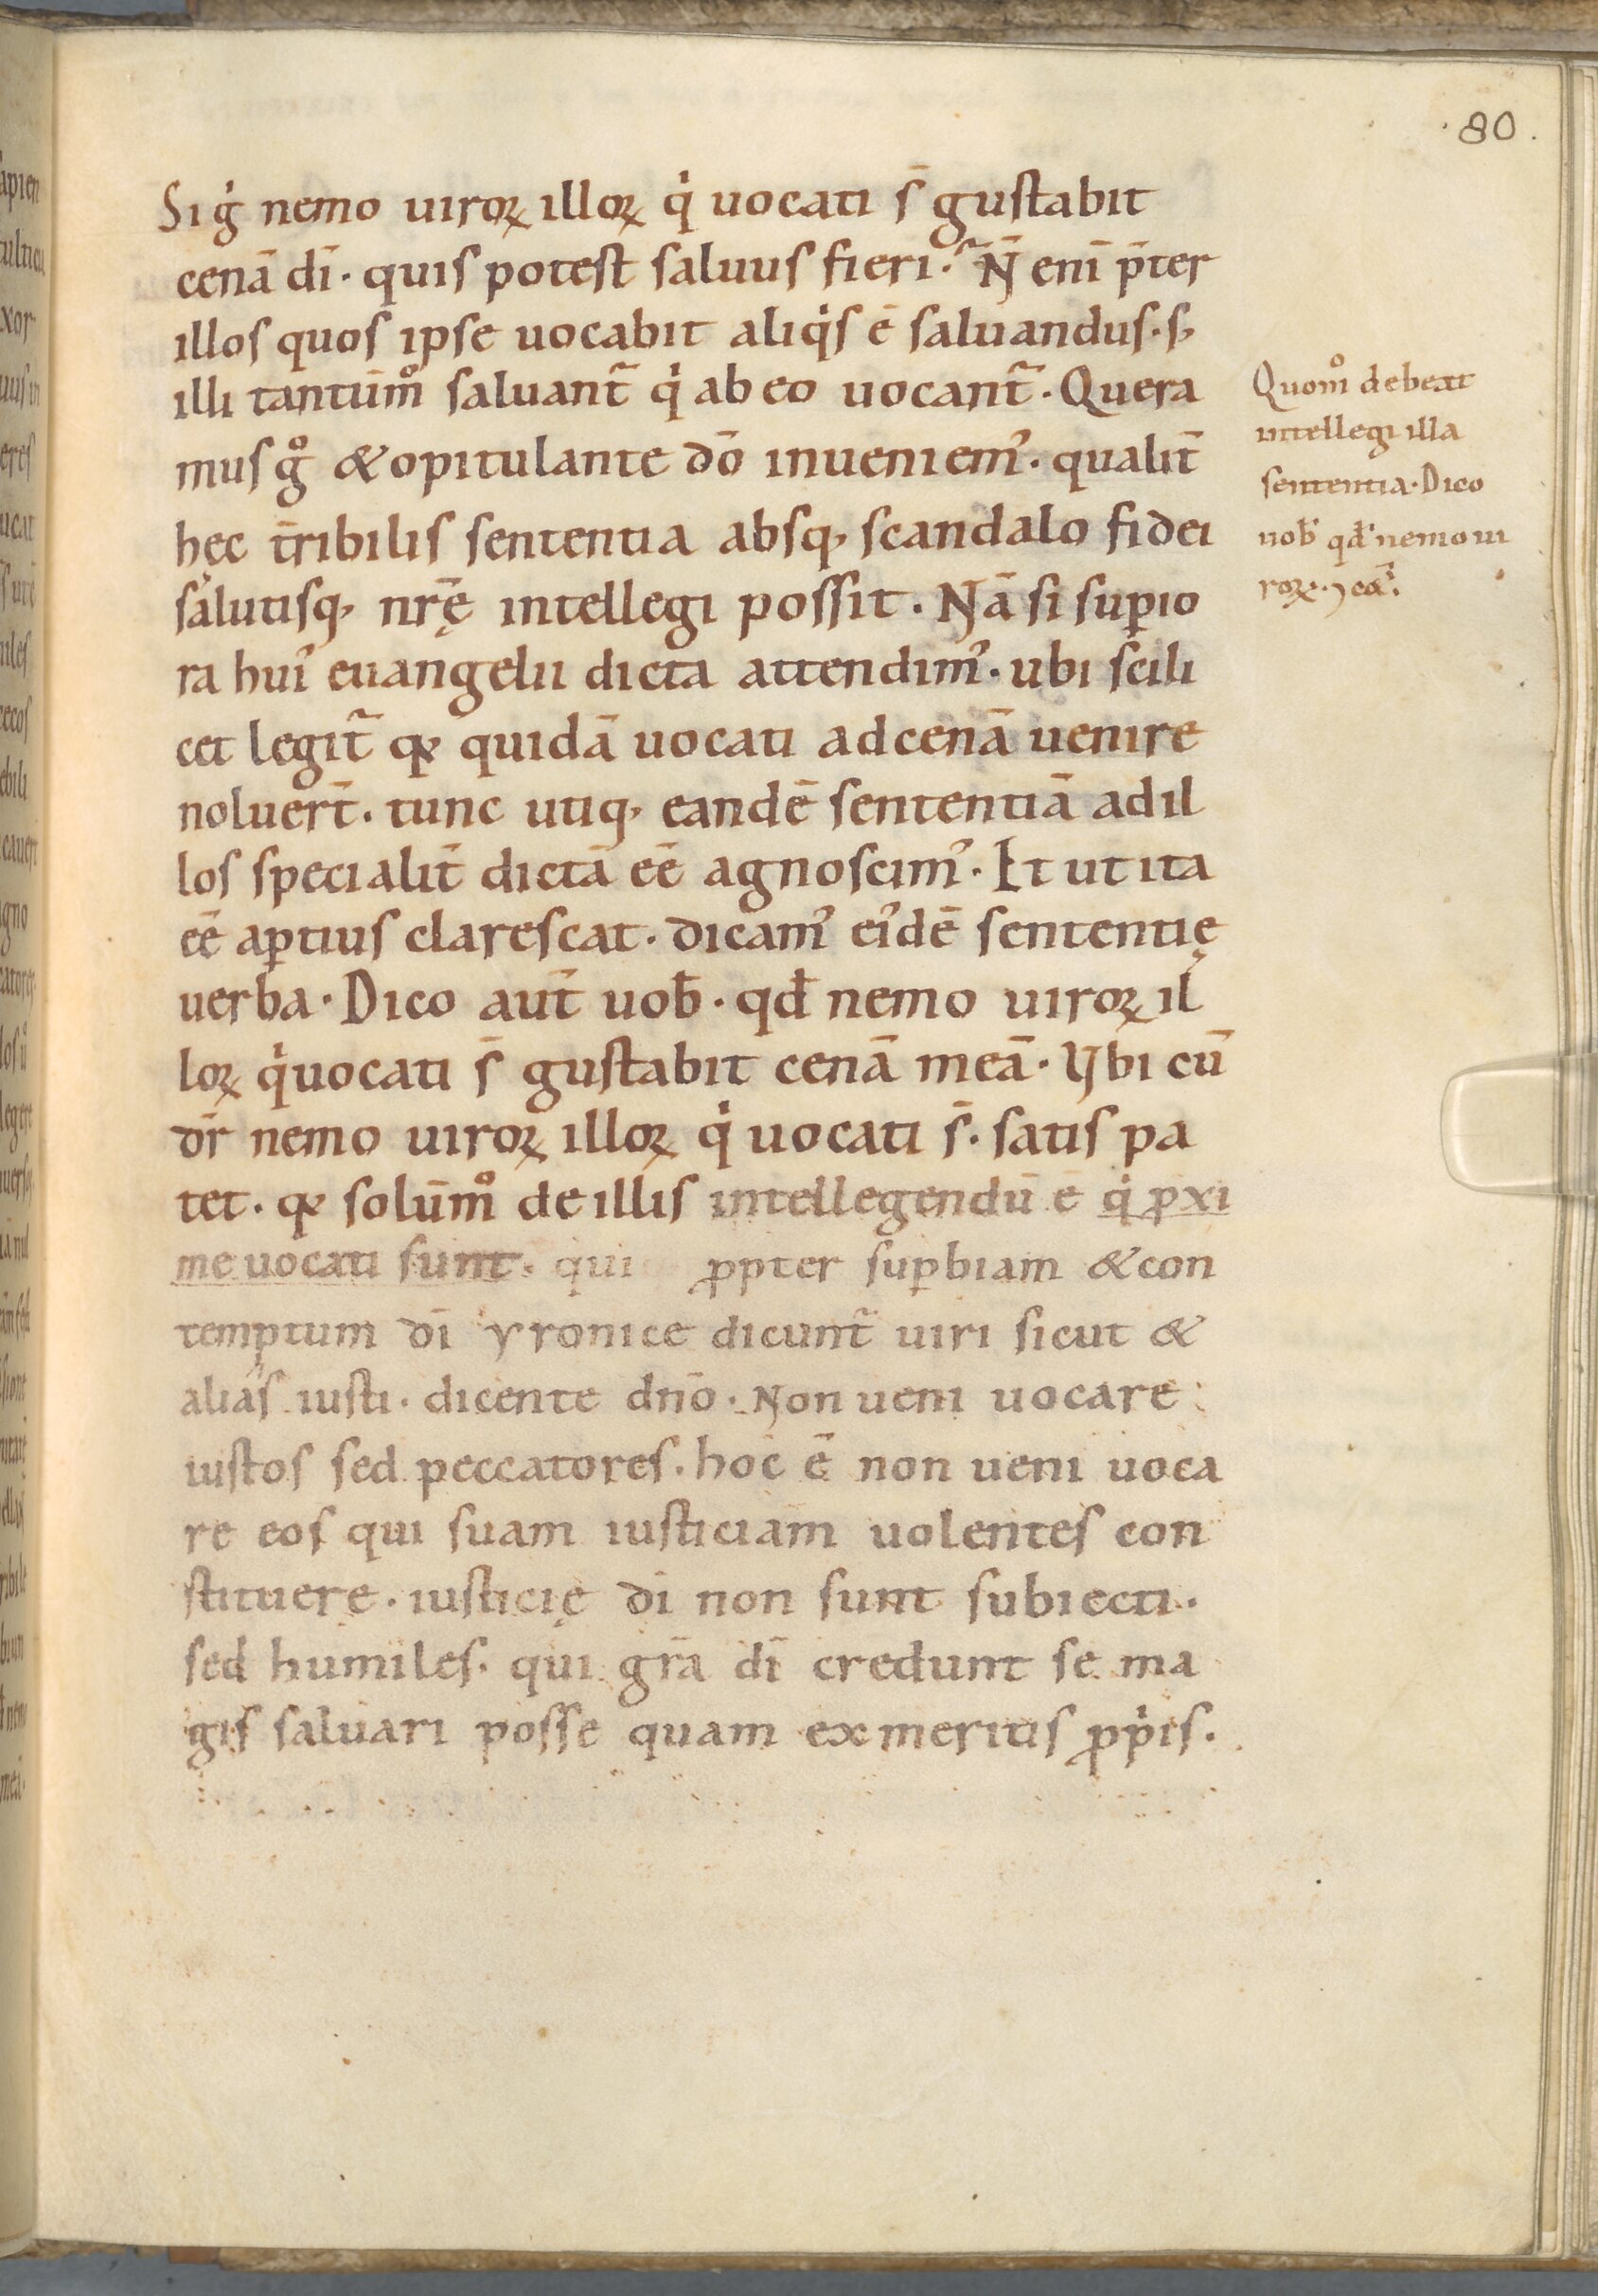 80.
Si gͥ nemo uiroꝝ illoꝝ qͥ uocati s̄ gustabit
cenā dī · quis potest saluus fieri ·̃ N̄ enī p̄ter
illos quos ipse uocabit aliqͥs ē saluandus · s;
illi tantūmͦ saluant᷑ qͥ ab eo uocant᷑ · Quera
mus gͦ & opitulante dō inueniemꝰ · qualit̄
hęc t̄ribilis sententia absq; scandalo fidei
salutisq; nr̄ę intellegi possit · Nā si supio
ra huiꝰ euangelii dicta attendimꝰ · ubi scili
cet legit᷑ ꝙ quidā uocati ad cenā uenire
noluer̄t · tunc utiq; eandē sententiā ad il
los specialit̄ dictā eē agnoscimꝰ · Et ut ita
eē aꝑtius clarescat · dicamꝰ eiꝰdē sententię
uerba · Dico aut̄ uob̄ · qd̄ nemo uiroꝝ il
loꝝ qͥ uocati s̄ gustabit cenā meā · Ybi cū
dr̄ nemo uiroꝝ illoꝝ qͥ uocati s̄ · satis pa
tet · ꝙ solūmͦ de illis intellegendū ē qͥ ꝓxi
me uocati sunt · qui ꝓpter suꝑbiam & con
temptum dī yronice dicunt᷑ uiri sicut &
alias iusti · dicente dn̄o · Non ueni uocare
iustos sed peccatores · hoc ē non ueni uoca
re eos qui suam iusticiam uolentes con
stituere · iusticię dī non sunt subiecti ·
sed humiles · qui gr̄a dī credunt se ma
gis saluari posse quam ex meritis ꝓpͥis ·
Quomͦ debeat
intellegi illa
sententia · Dico
uob̄ qd̄ nemo ui
roꝝ · ⁊ cet̄.